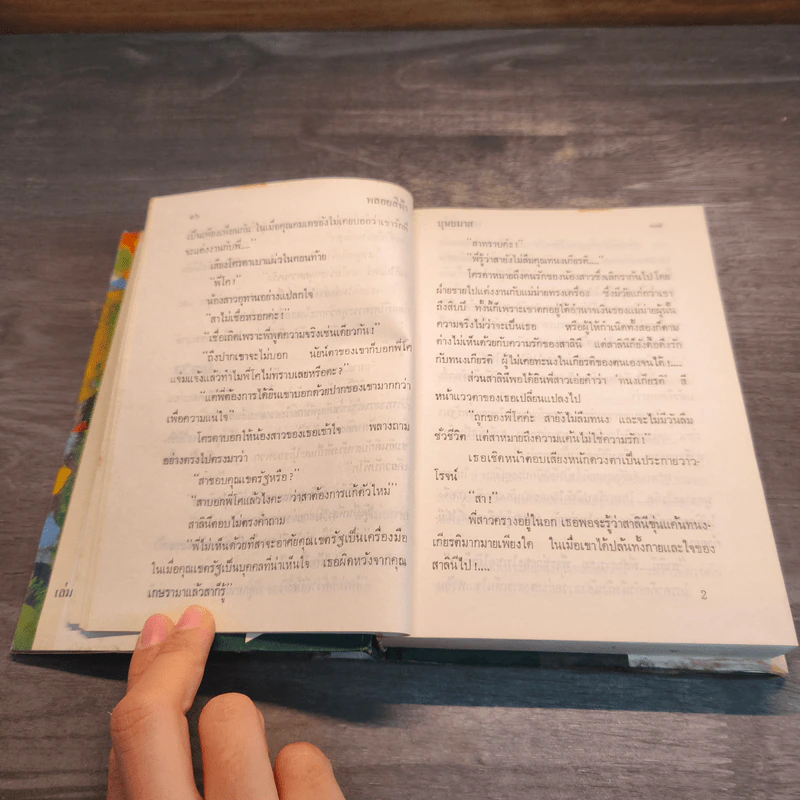 ๑๖ พลอยสีฟ้า
เป็นเพียงเพื่อนกัน ในเมื่อคุณคมเดชยังไม่เคยบอกว่าเขารักพี่
จะแต่งงานกับพี่...."
เสียงโครตาเบาแผ่วในตอนท้าย
"พี่โค!"
น้องสาวอุทานอย่างแปลกใจ
"สาไม่เชื่อหรอกค่ะ!"
"เชื่อเถิดเพราะพี่พูดความจริงเช่นเดียวกัน!"
"ถึงปากเขาจะไม่บอก นัยน์ตาของเขาก็บอกพี่โค
แจ่มแจ้งแล้วทำไมพี่โคไม่ทราบเลยหรือคะ?"
"แต่พี่ต้องการได้ยินเขาบอกด้วยปากของเขามากกว่า
เพื่อความแน่ใจ"
โครตาบอกให้น้องสาวของเธอเข้าใจ พลางถาม
อย่างตรงไปตรงมาว่า
"สาชอบคุณเขตรัฐหรือ?"
"สาบอกพี่โคแล้วไงคะ ว่าสาต้องการแก้ตัวใหม่"
สาลินีตอบไม่ตรงคำถาม
"พี่ไม่เห็นด้วยที่สาจะอาศัยคุณเขตรัฐเป็นเครื่องมือ
ในเมื่อคุณเขตรัฐเป็นบุคคลที่น่าเห็นใจ เธอผิดหวังจากคุณ
เกษรามาแล้วสาก็รู้"
เล่ม
บุษยมาส ๑๗
"สาทราบค่ะ!"
"พี่รู้ว่าสายังไม่ลืมคุณทนงเกียรติ...."
โครตาหมายถึงคนรักของน้องสาวซึ่งเลิกรากันไป โดย
ฝ่ายชายไปแต่งงานกับแม่ม่ายทรงเครื่อง ซึ่งมีวัยแก่กว่าเขา
ถึงสิบปี ทั้งนี้ก็เพราะเขาตกอยู่ใต้อำนาจเงินของแม่ม่ายผู้นั้น
ความจริงไม่ว่าจะเป็นเธอ หรือผู้ให้กำเนิดทั้งสองก็ตาม
ต่างไม่เห็นด้วยกับความรักของสาลินี แต่สาลินีก็ยังดื้อดึงรัก
กับทนงเกียรติ ผู้ไม่เคยทะนงในเกียรติของตนเองจนได้!....
ส่วนสาลินีพอได้ยินพี่สาวเอ่ยคำว่า "ทนงเกียรติ" สี
หน้าแววตาของเธอเปลี่ยนแปลงไป
"ถูกของพี่โคค่ะ สายังไม่ลืมทนง และจะไม่มีวันลืม
ชั่วชีวิต แต่สาหมายถึงความแค้นไม่ใช่ความรัก!"
เธอเชิดหน้าตอบเสียงหนักดวงตาเป็นประกายวาว-
โรจน์
"สา!"
พี่สาวครางอยู่ในอก เธอพอจะรู้ว่าสาลินีขุ่นแค้นทนง-
เกียรติมากมายเพียงใด ในเมื่อเขาได้ปล้นทั้งกายและใจของ
สาลินีไป!....
2